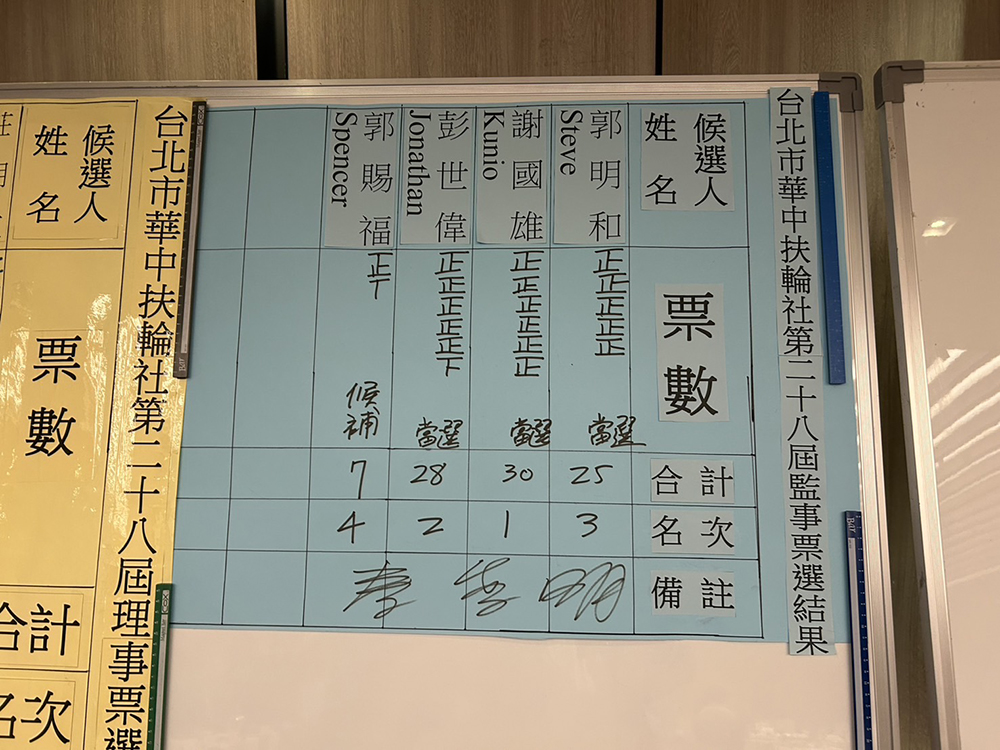 台北市華中扶輪社第二十八屆監事票選結果
候選人
姓名
票數
合計
名次
備註
郭明和
Steve
正正正正正
當選
25
3
謝國雄
Kunio
正正正正正正
當選
30
1
彭世偉
Jonathan
正正正正正下
當選
28
2
郭賜福
Spencer
正丅
候補
7
4
台北市華中扶輪社第二十八屆理事票選
候選人
姓名
票數
合計
名次